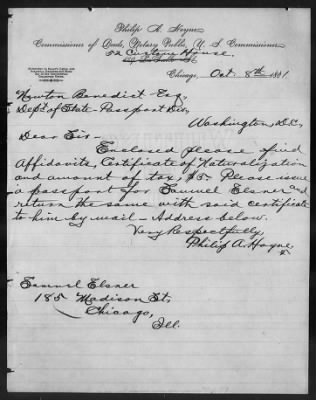 Philip A. Hoyne
Commissioner of Deeds, Notary Public, U. S. Commissioner
52 Custom House
Chicago, Oct. 8th 1881
Newton Benedict Esq.
Dept. of State Passport Div.
Washington, D.C.
Dear Sir-
Enclosed please find
Affidavits, Certificate of Naturalization
and amount of tax, $5. Please issue
a passport for Samuel Elsner and
return the same with said certificate
to him by mail - Address below.
Very Respectfully,
Philip A. Hoyne
Samuel Elsner
185 Madison St,
Chicago,
Ill.